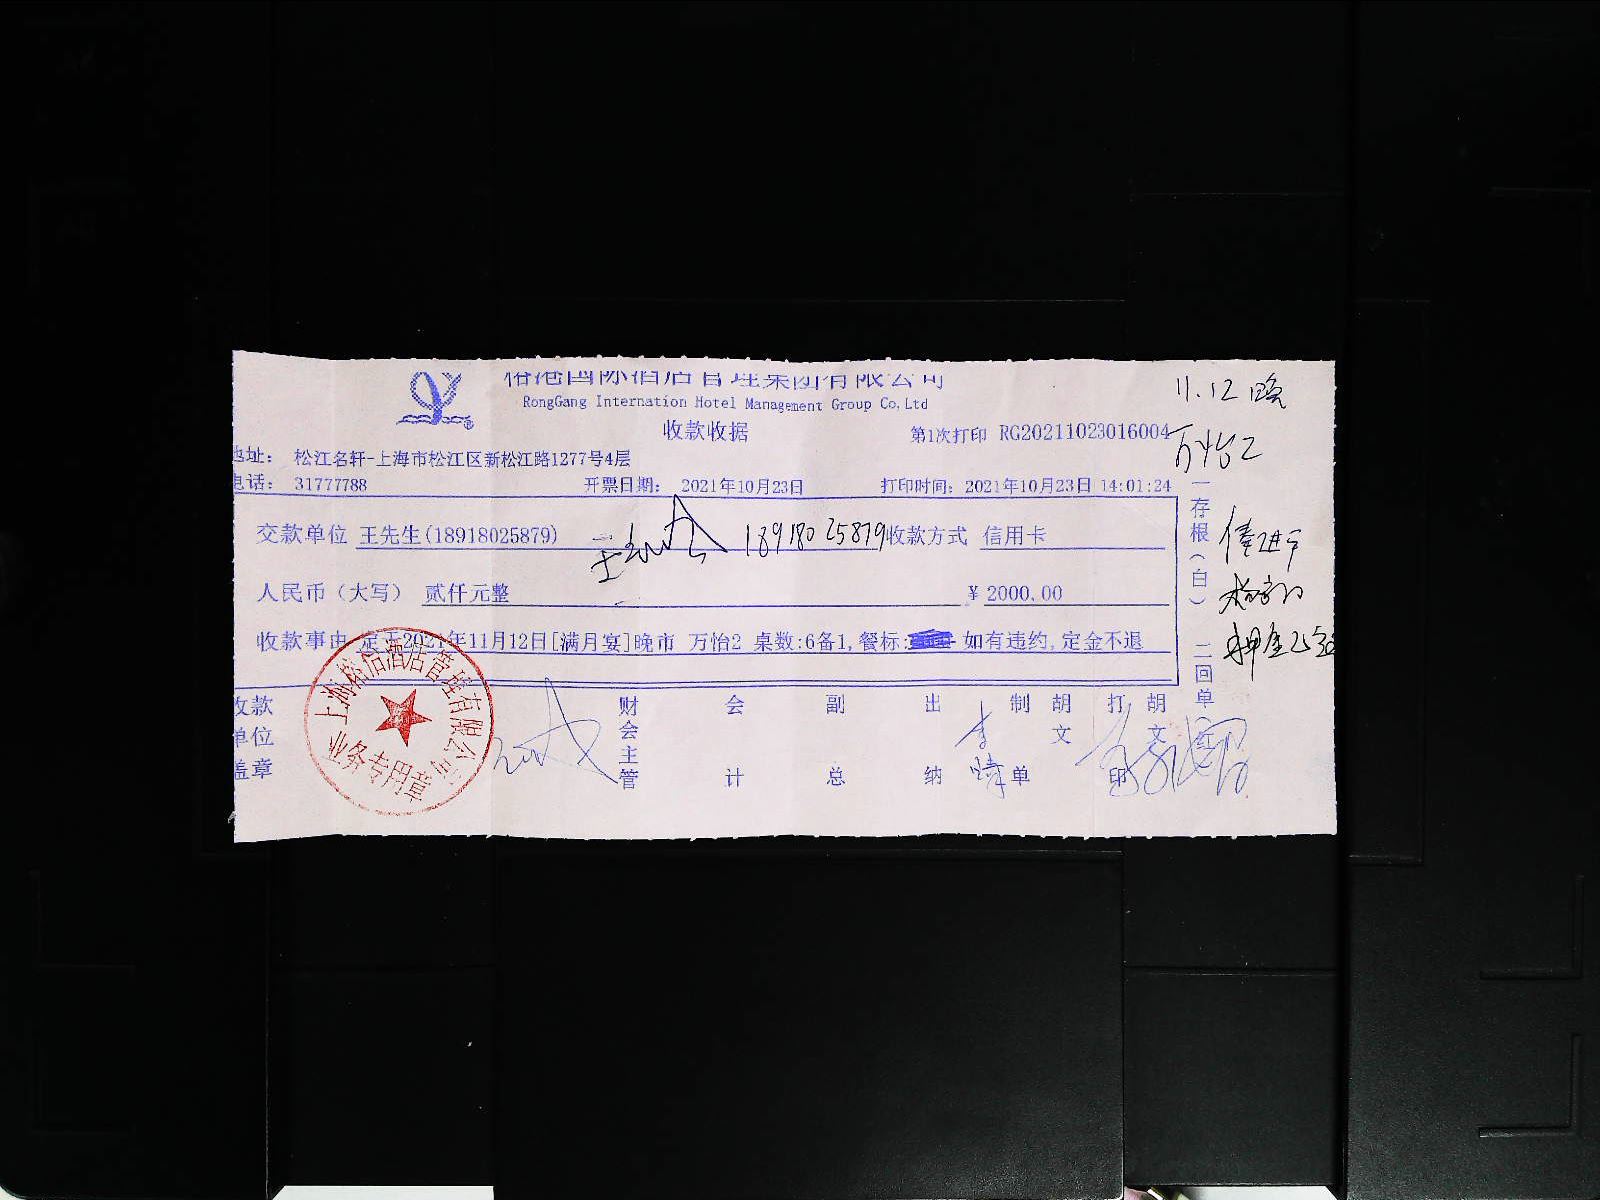 裕港国际酒店管理集团有限公司
RongGang Internation Hotel Management Group Co,Ltd
收款收据
第1次打印 RG20211023016004
地址: 松江名轩-上海市松江区新松江路1277号4层
电话: 31777788 开票日期: 2021年10月23日 打印时间: 2021年10月23日 14:01:24
交款单位 王先生(18918025879) 18918025879 收款方式 信用卡
人民币(大写) 贰仟元整 ¥ 2000.00
收款事由 定于2021年11月12日[满月宴]晚市 万怡2 桌数:6备1,餐标: 如有违约,定金不退
收款单位盖章
财会主管
会计
副总
出纳
制单 胡文
打印 胡文红
上海裕佰酒店管理有限公司
业务专用章
一存根(白) 二回单
11.12 晚
万怡2